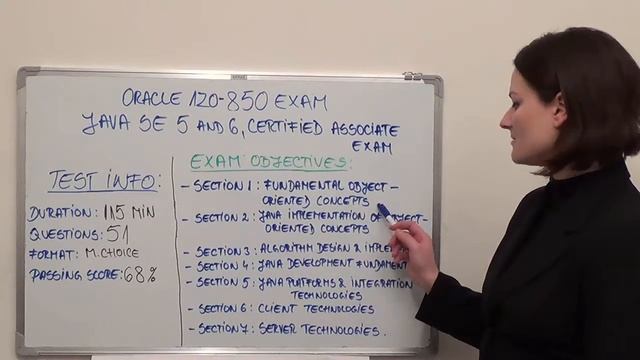 ORACLE 1Z0-850 EXAM
JAVA SE 5 AND 6, CERTIFIED ASSOCIATE
EXAM
TEST INFO:
DURATION: 115 MIN
QUESTIONS: 51
FORMAT: M.CHOICE
PASSING SCORE: 68%
EXAM OBJECTIVES:
- SECTION 1: FUNDAMENTAL OBJECT-
ORIENTED CONCEPTS
- SECTION 2: JAVA IMPLEMENTATION OF OBJECT-
ORIENTED CONCEPTS
- SECTION 3: ALGORITHM DESIGN &
- SECTION 4: JAVA DEVELOPMENT
- SECTION 5: JAVA PLATFORMS & INTEGRATION
TECHNOLOGIES
- SECTION 6: CLIENT TECHNOLOGIES
- SECTION 7: SERVER TECHNOLOGIES.